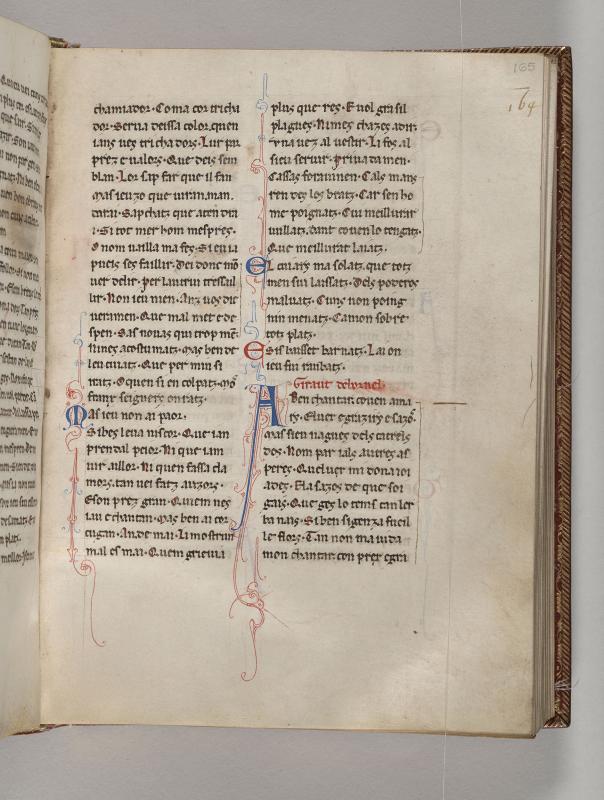 165
164
chamiador. Coma cor tricha
dor. Serua deissa color. quen
ians ues trichadors. Lur pa
prez e ualors. Que deis sem
blan. Loi sap far que il fan
Mas ieuzo que iuran. man.
tarai. Sapchatz que aten dra
i. Si tot mer hom mesprez.
O nom uailla ma fes. Si eu ia
pueis ses faillir. Dei donc mo
uer delir. per lauuir tressail
lir. Non ieu men. Anz uos dic
ueramen. Que mal met e de
spen. Sas nouas qui trop men
Nines acostumatz. Mas ben de
len cuiatz. Que per mi si
ratz. O quen si en colpatz. mos
franx seigners onratz.
Mas ieu non ai paor.
Si bes leua niscor. Que ian
prendal peior. Ni que iam
uir aillor. Ni quen fassa cla
mors. tan uei fatz auzors.
E son prez gran. Quiem nes
iau e chantan. Mas ben ai cor
cugan. An de mai. Li mostrun
mal es mai. Quem grieuia
plus que res. E uol gra sil
plagues. Ni mes chazes adir.
Vna uez al uestir. Li fos al
sieu seruir. priuadamen.
Cassas forainnen. Cals mans
ren dez los bratz. Car sen ho
me poignatz. Cui meillurar
uuillatz. dant couen lo tengatz.
Que meillurat laiatz.
El cuiary ma solatz. que totz
men sui laissatz. Dels poderos
maluatz. Cuns non poing
nin menatz. Ca mon sobre
totz platz.
E si baisset barnatz. Lai on
ieu fui raubatz.
Giraut debrunel.
A Ben chantar couen ama
rs. E luec e grazirs e sazos.
mas sieu nagues dels catrels
dos. Nom par ials autres as
peres. Quel uer mi dona ioi
ades. E la sazos de que soi
gais. Que ges lo tems can ler
ba nais. Si ben sigenza fueil
le flors. Tan non maiuda
mon chantar. con prez e gra